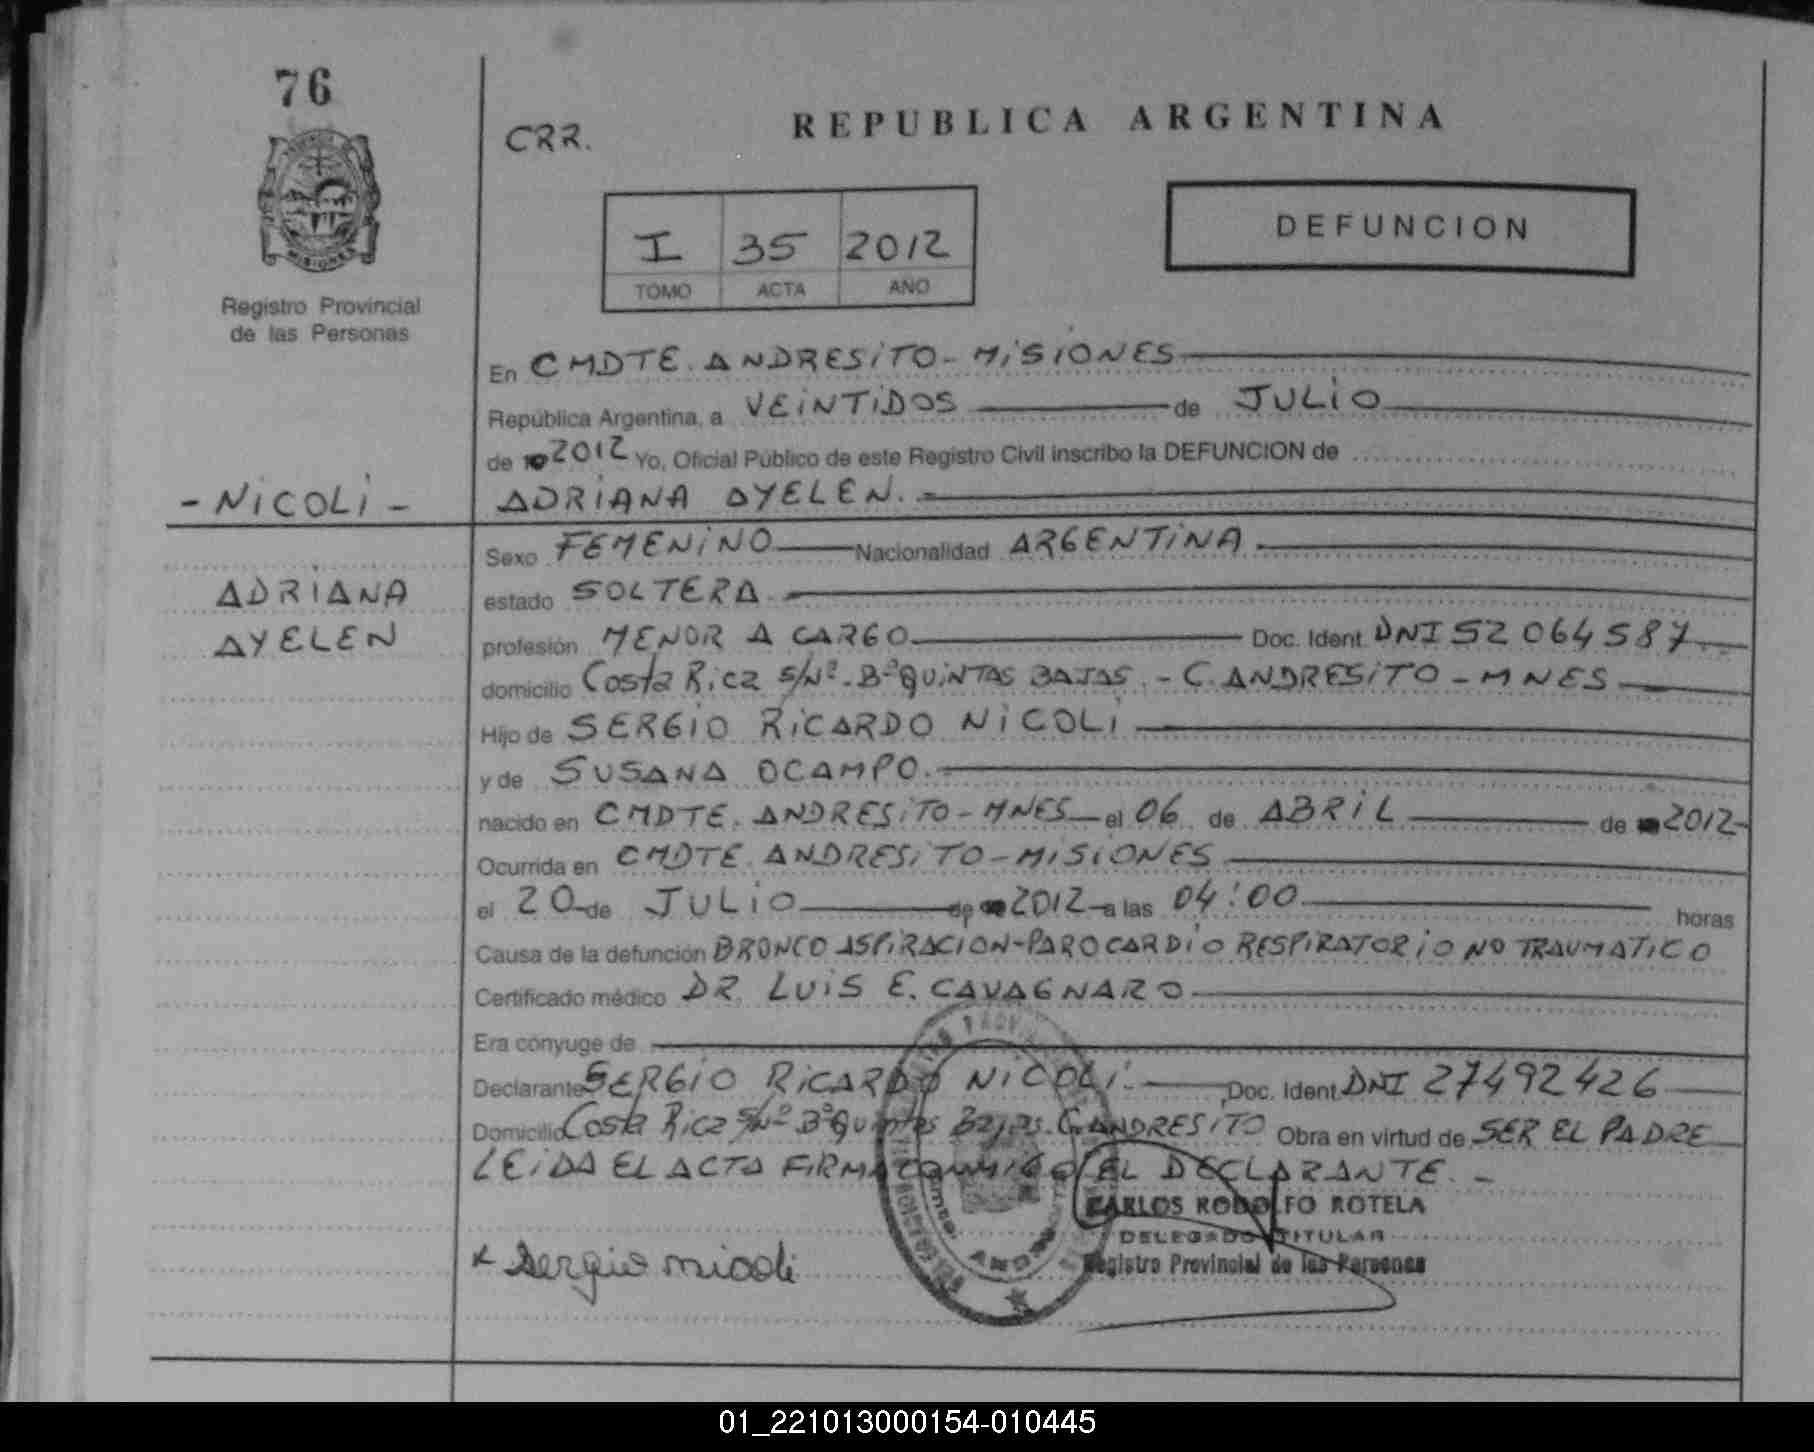 76
CRR.
REPUBLICA ARGENTINA
DEFUNCION
I 35 2012
TOMO ACTA AÑO
MISIONES
Registro Provincial
de las Personas
En CMDTE. ANDRESITO - MISIONES
República Argentina, a VEINTIDOS de JULIO
de 2012 Yo, Oficial Público de este Registro Civil inscribo la DEFUNCION de
- NICOLI - ADRIANA AYELEN. -
Sexo FEMENINO Nacionalidad ARGENTINA
ADRIANA estado SOLTERA
AYELEN profesión MENOR A CARGO Doc. Ident. DNI 52 064587
domicilio Costa Rica S/Nº - Bº QUINTAS BAJAS. - C. ANDRESITO - MNES
Hijo de SERGIO RICARDO NICOLI
y de SUSANA OCAMPO.
nacido en CMDTE. ANDRESITO - MNES el 06 de ABRIL de 2012
Ocurrida en CMDTE. ANDRESITO - MISIONES
el 20 de JULIO de 2012 a las 04:00 horas
Causa de la defunción BRONCO ASPIRACION - PARO CARDIO RESPIRATORIO NO TRAUMATICO
Certificado médico DR. LUIS E. CAVAGNARO
Era cónyuge de
Declarante SERGIO RICARDO NICOLI. Doc. Ident. DNI 27492426
Domicilio Costa Rica S/Nº Bº Quintas Bajas. C. ANDRESITO Obra en virtud de SER EL PADRE
LEIDA EL ACTA FIRMA CONMIGO EL DECLARANTE. -
CARLOS RODOLFO ROTELA
DELEGADO TITULAR
Registro Provincial de las Personas
x Sergio nicoli
01_221013000154-010445